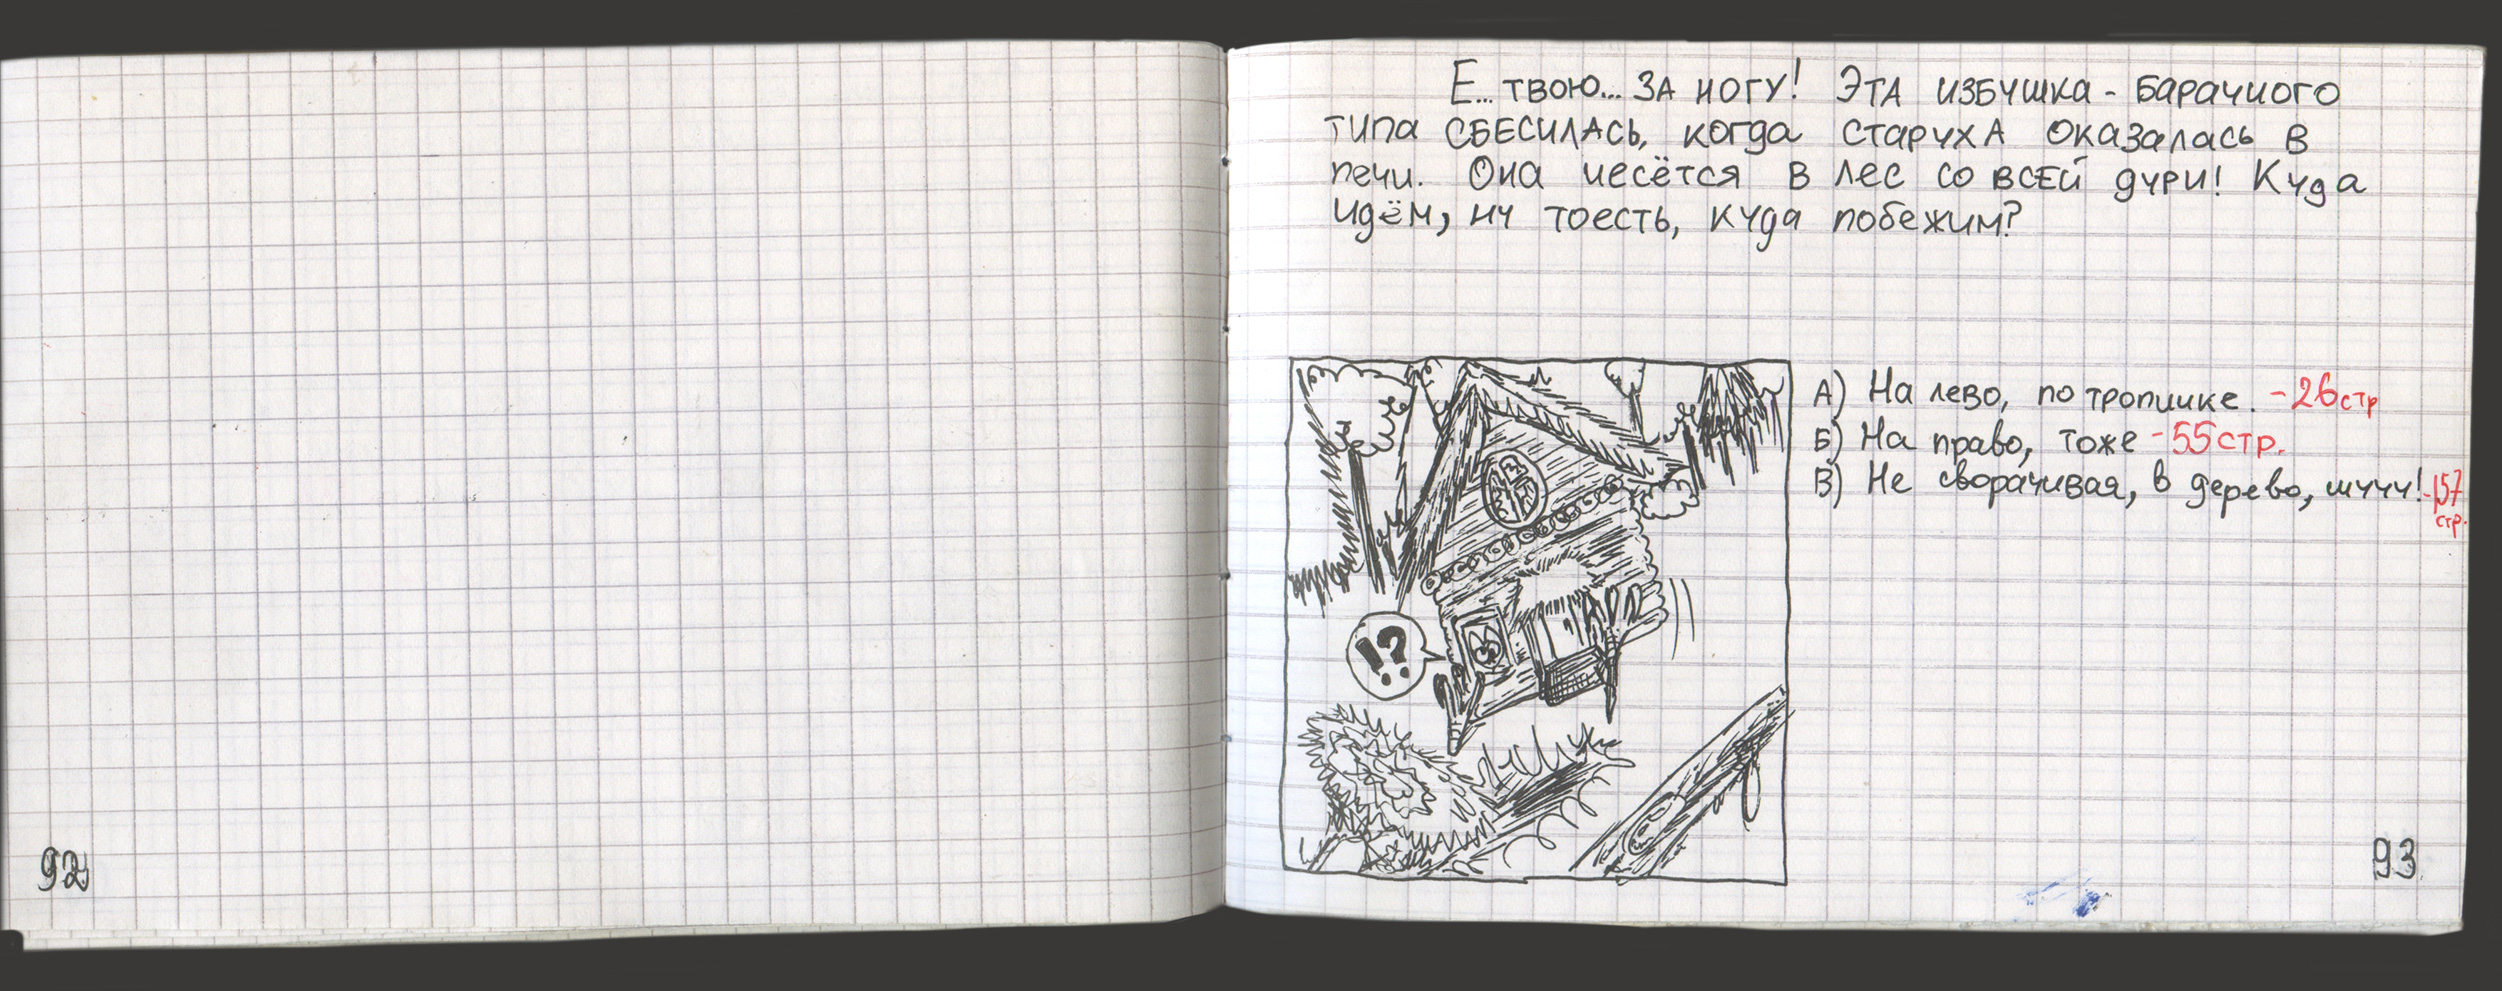 Е... твою... ЗА НОГУ! ЭТА ИЗБУШКА - БАРАЧНОГО
типа СБЕСИЛАСЬ, когда СТАРУХА оказалась в
печи. Она несётся в лес со ВСЕЙ дури! Куда
идём, ну тоесть, куда побежим?
А) На лево, по тропинке. -26стр
Б) На право, тоже -55стр.
В) Не сворачивая, в дерево, шууу! -157
стр.
!?
92
93